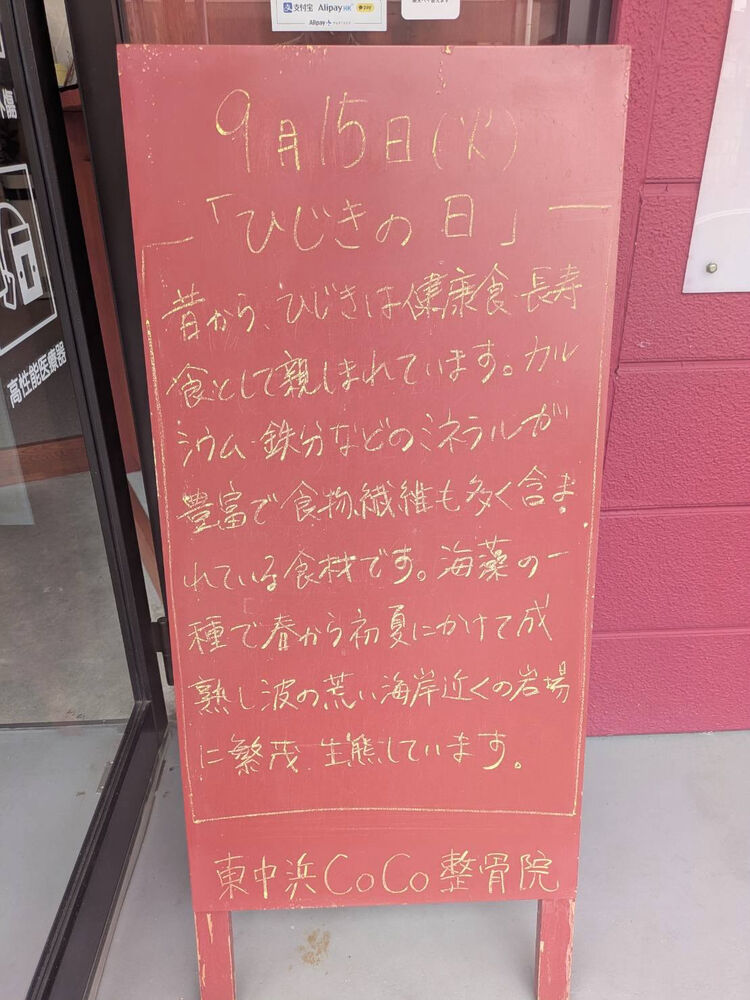 支付宝 Alipay HK
9月15日(火)
「ひじきの日」
昔から、ひじきは健康食・長寿
食として親しまれています。カル
シウム・鉄分などのミネラルが
豊富で食物繊維も多く含ま
れている食材です。海藻の一
種で春から初夏にかけて成
熟し波の荒い海岸近くの岩場
に繁茂 生態しています。
東中浜CoCo整骨院
外傷
高性能医療器